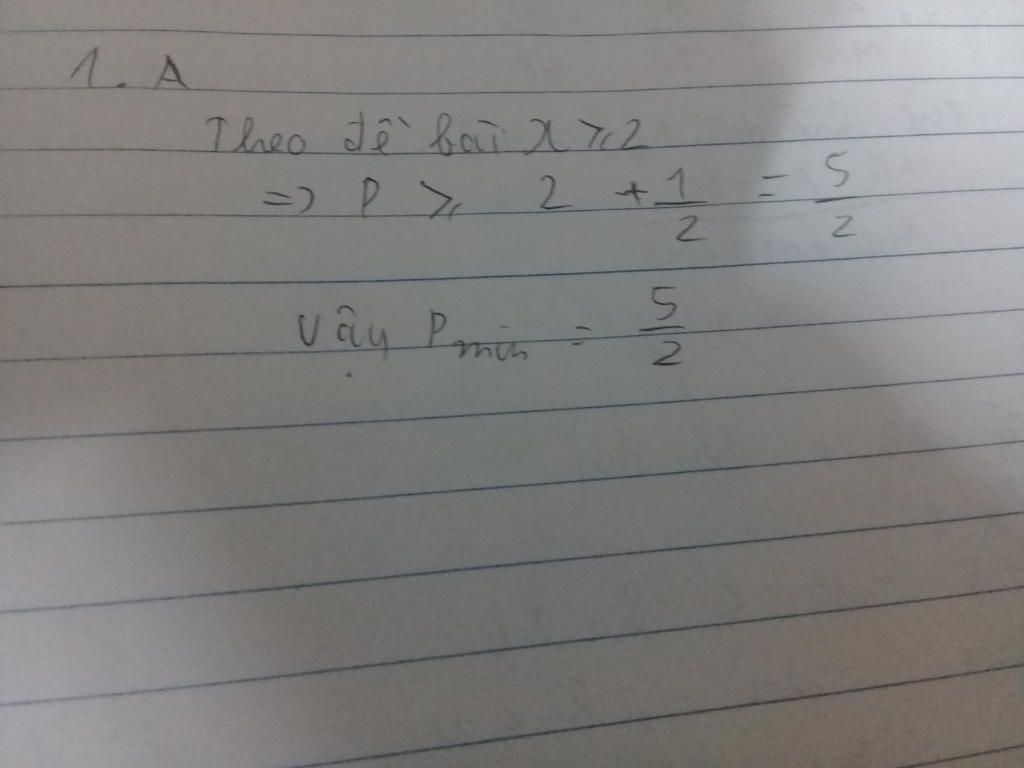 1. A
Theo đề bài x ⩾ 2
=> P ⩾ 2 + 1/2 = 5/2
Vậy Pmin = 5/2